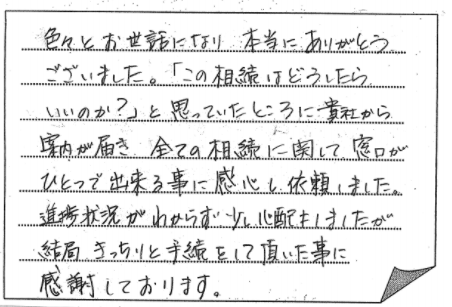 色々とお世話になり 本当にありがとう
ございました。「この相続はどうしたら
いいのか?」と思っていたところに貴社から
案内が届き 全ての相続に関して窓口が
ひとつで出来る事に感心し依頼しました。
進捗状況がわからず少し心配もしましたが
結局 きっちりと手続をして頂いた事に
感謝しております。